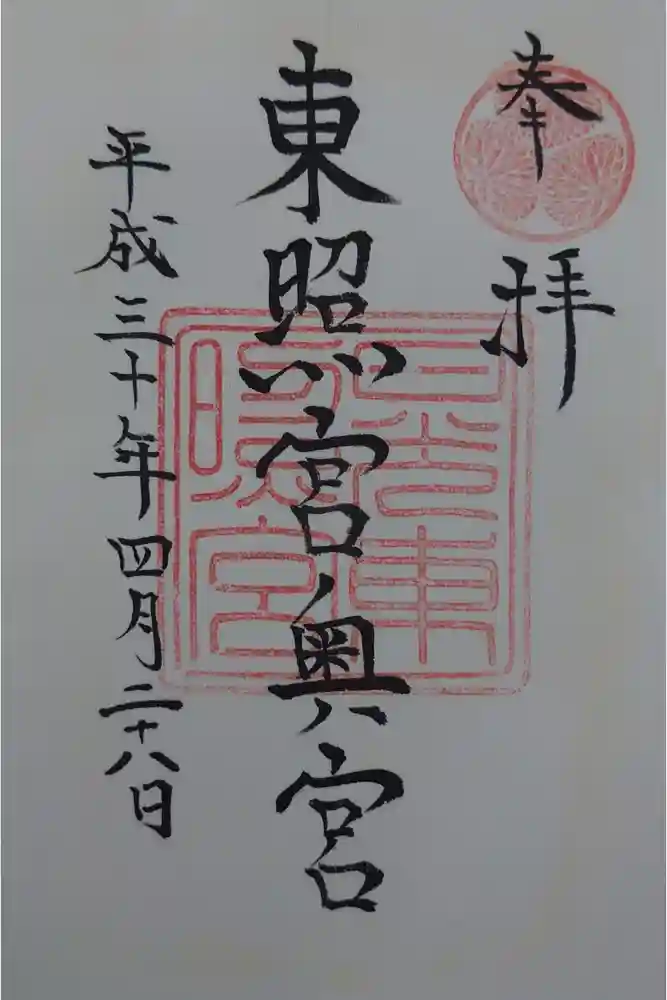 奉拝
東照宮奥宮
日光東照宮
平成三十年四月二十八日